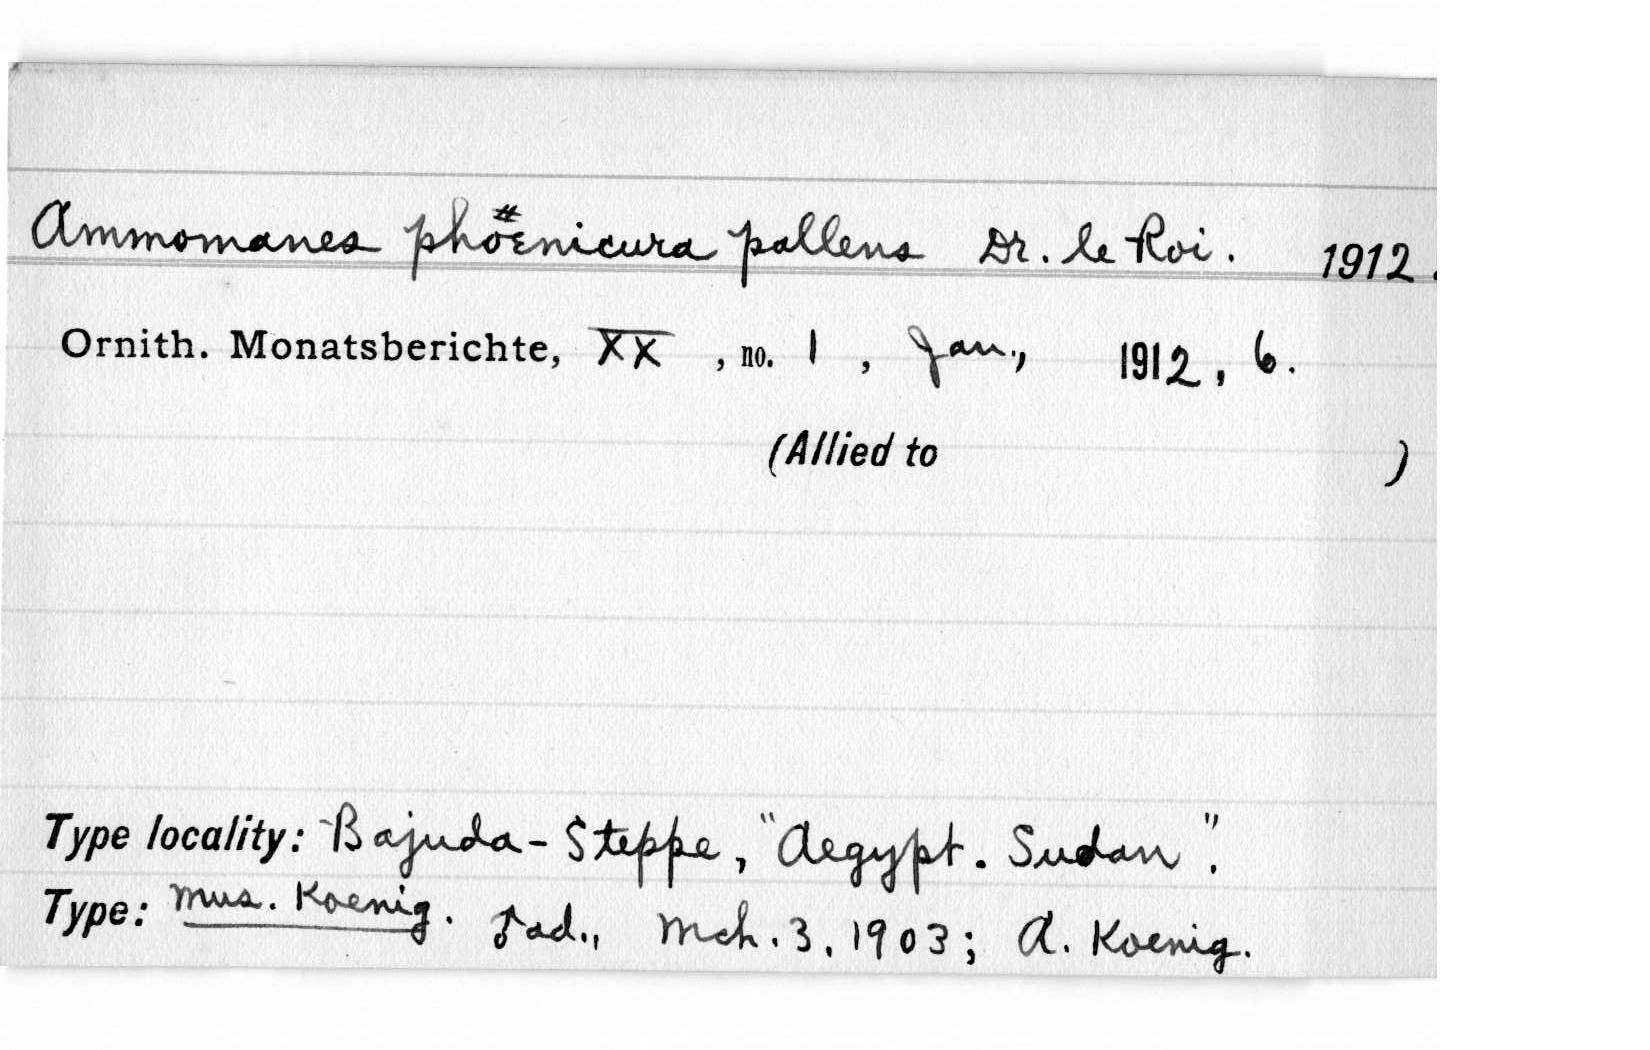 Ammomanes phoenicura pallens Dr. le Roi. 1912.
Ornith. Monatsberichte, XX, no. 1, Jan., 1912, 6.
(Allied to )
Type locality: Bajuda-Steppe, "Aegypt. Sudan".
Type: Mus. Koenig. ad., Mch. 3, 1903; A. Koenig.